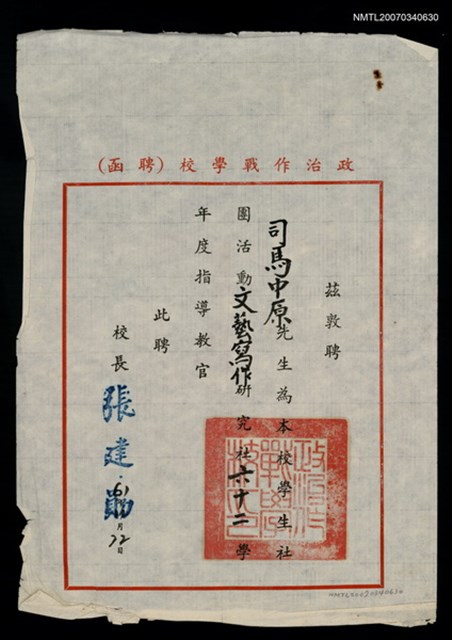 NMTL20070340630
政治作戰學校（聘函）
茲敦聘
司馬中原先生為本校學生社
團活動文藝寫作研究社六十二學
年度指導教官
此聘
校長 張建勛
月12日
NMTL20070340630